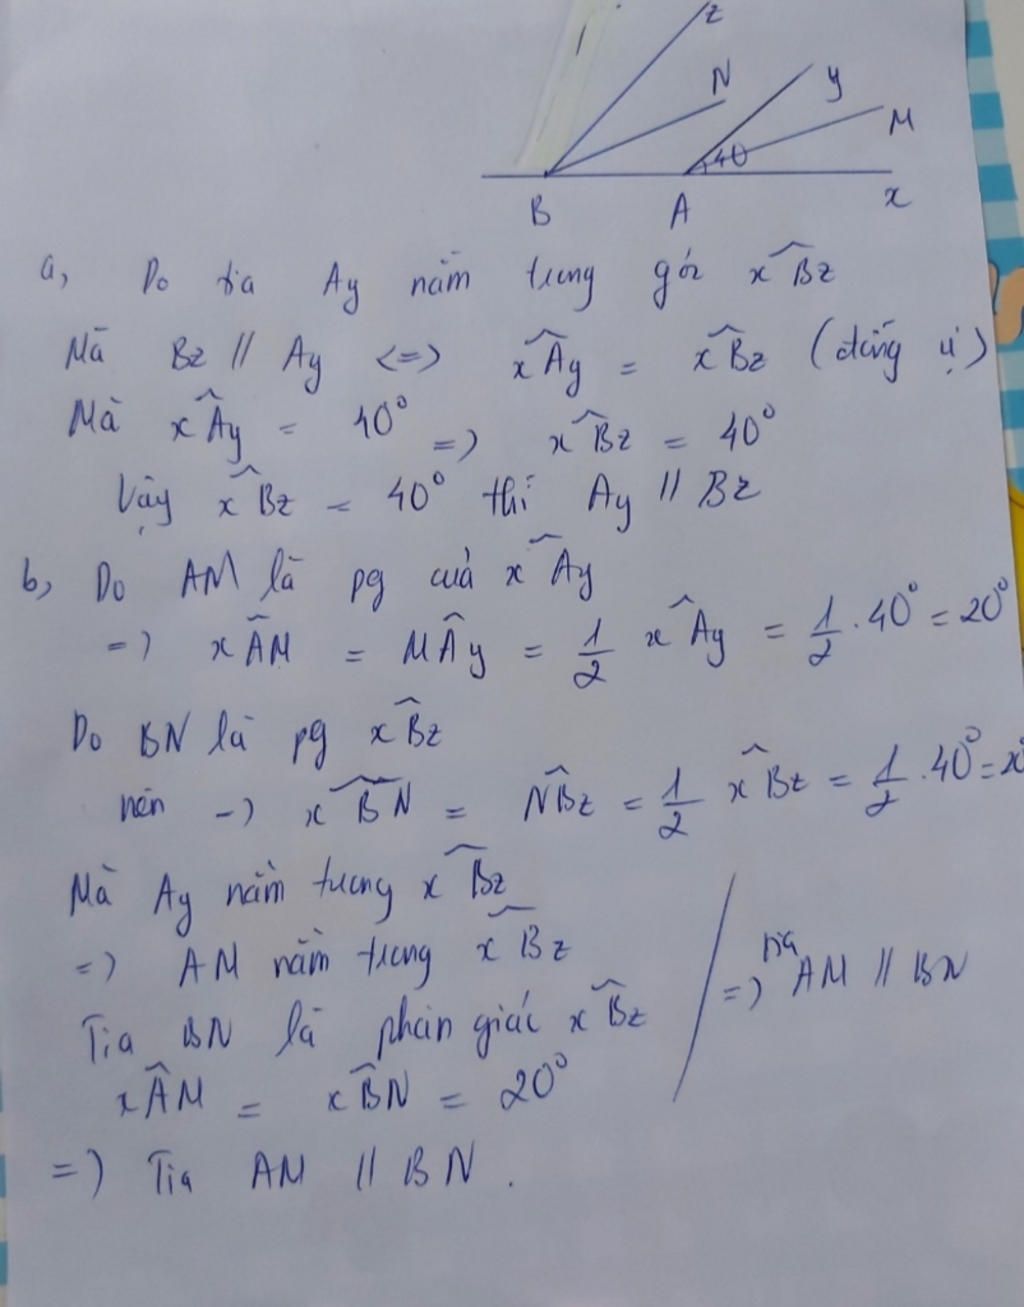 z
N
y
M
40
B
A
x
a, Do tia Ay nằm trong góc xBz
Mà Bz // Ay <=> xAy = xBz (đồng vị)
Mà xAy = 40° => xBz = 40°
Vậy xBz = 40° thì Ay // Bz
b, Do AM là pg của xAy
=> xAM = MAy = 1/2 xAy = 1/2 . 40° = 20°
Do BN là pg xBz
nên => xBN = NBz = 1/2 xBz = 1/2 . 40° = 20°
Mà Ay nằm trong xBz
=> AM nằm trong xBz
Tia BN là phân giác xBz
xAM = xBN = 20°
=> tia AM // BN
=> Tia AM // BN.